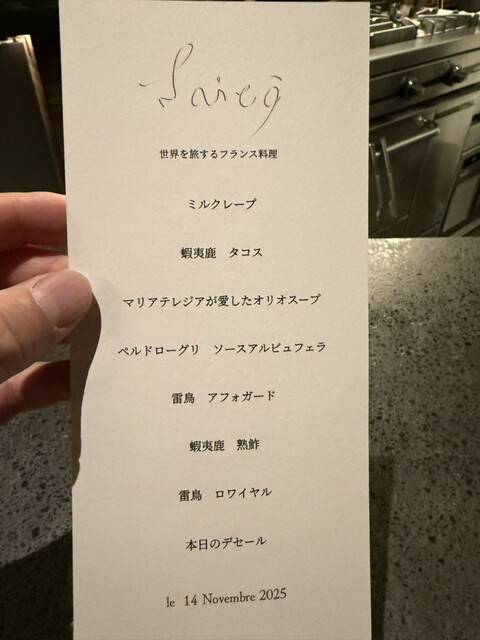 世界を旅するフランス料理
ミルクレープ
蝦夷鹿　タコス
マリアテレジアが愛したオリオスープ
ペルドローグリ　ソースアルビュフェラ
雷鳥　アフォガード
蝦夷鹿　熟鮓
雷鳥　ロワイヤル
本日のデセール
le 14 Novembre 2025